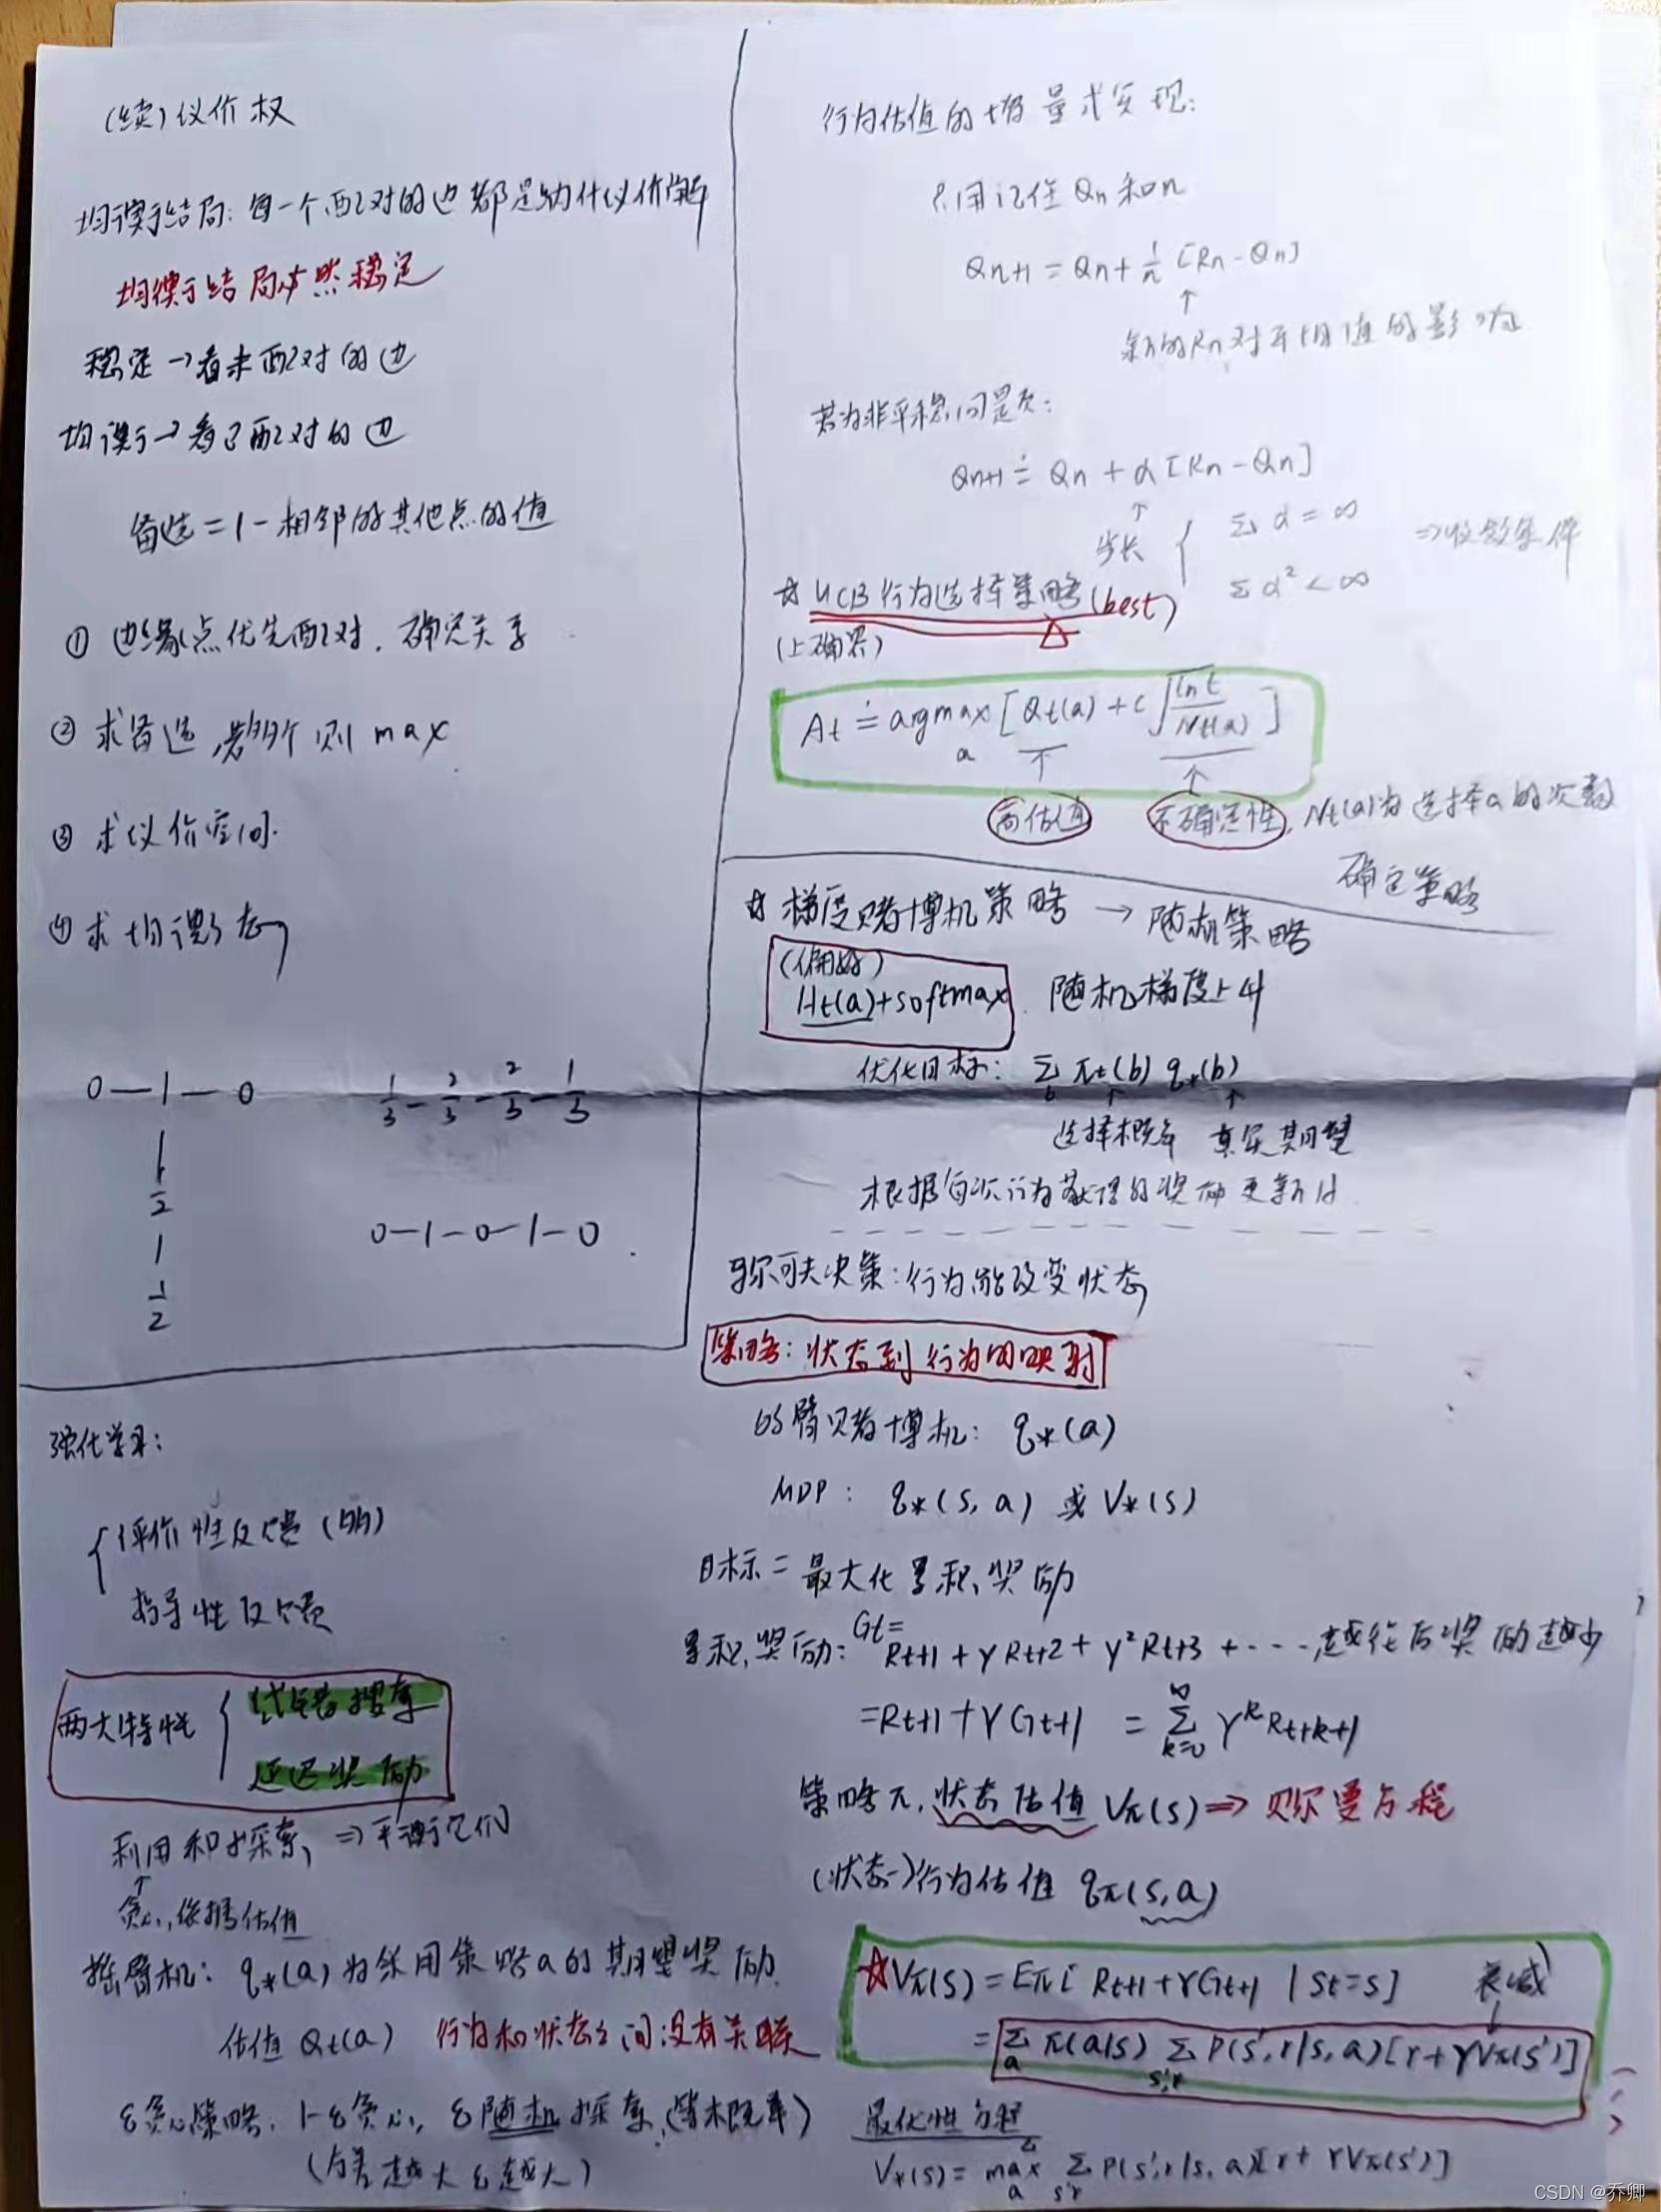 (续)议价权
均衡结局:每一个配对的边都是纳什议价解
均衡结局必然稳定
稳定→看未配对的边
均衡→看已配对的边
备选=1-相邻的其他点的值
① 边缘点优先配对,确定关系
② 求备选,若多个则max
③ 求议价空间.
④ 求均衡态
0—1—0
1/2
1
1/2
1/3 - 2/3 - 2/3 - 1/3
0—1—0—1—0
强化学习:
评价性反馈(MAB)
指导性反馈
两大特性
试错搜索
延迟奖励
利用和探索,⇒平衡它们
↑
贪心,依据估值
摇臂机: q*(a)为采用策略a的期望奖励.
估值 Qt(a) 行为和状态之间没有关联
ε贪心策略. 1-ε贪心, ε随机探索,(等概率)
(方差越大ε越大)
行为估值的增量式实现:
只用记住 Qn 和n
Qn+1 = Qn + 1/n [Rn - Qn]
↑
新的Rn对平均值的影响
若为非平稳问题:
Qn+1 ≐ Qn + α [Rn - Qn]
↑
步长 { Σ α = ∞ ⇒收敛条件
Σ α² < ∞
☆ UCB行为选择策略(best)
(上确界)
At ≐ argmax a [Qt(a) + c √(ln t / Nt(a))]
高估值 不确定性, Nt(a)为选择a的次数
确定策略
☆ 梯度赌博机策略 → 随机策略
(偏好)
Ht(a)+softmax. 随机梯度上升
优化目标: Σb πt(b) q*(b)
选择概率 真实期望
根据每次行为获得的奖励更新H
马尔可夫决策:行为能改变状态
策略:状态到行为的映射
的臂赌博机: q*(a)
MDP: q*(s,a) 或 V*(s)
目标=最大化累积奖励
累积奖励: Gt= Rt+1 + γRt+2 + γ²Rt+3 + ····,越往后奖励越少
=Rt+1 + γGt+1 = Σ k=0 ∞ γ^k Rt+k+1
策略π,状态估值 Vπ(s) ⇒ 贝尔曼方程
(状态-)行为估值 qπ(s,a)
☆Vπ(s) = Eπ[Rt+1 + γGt+1 | St=s] 衰减
= Σa π(a|s) Σs',r P(s',r|s,a)[r+γVπ(s')]
最优性方程
V*(s) = max a Σs'r P(s',r|s,a)[r + γVπ(s')]
CSDN @乔卿